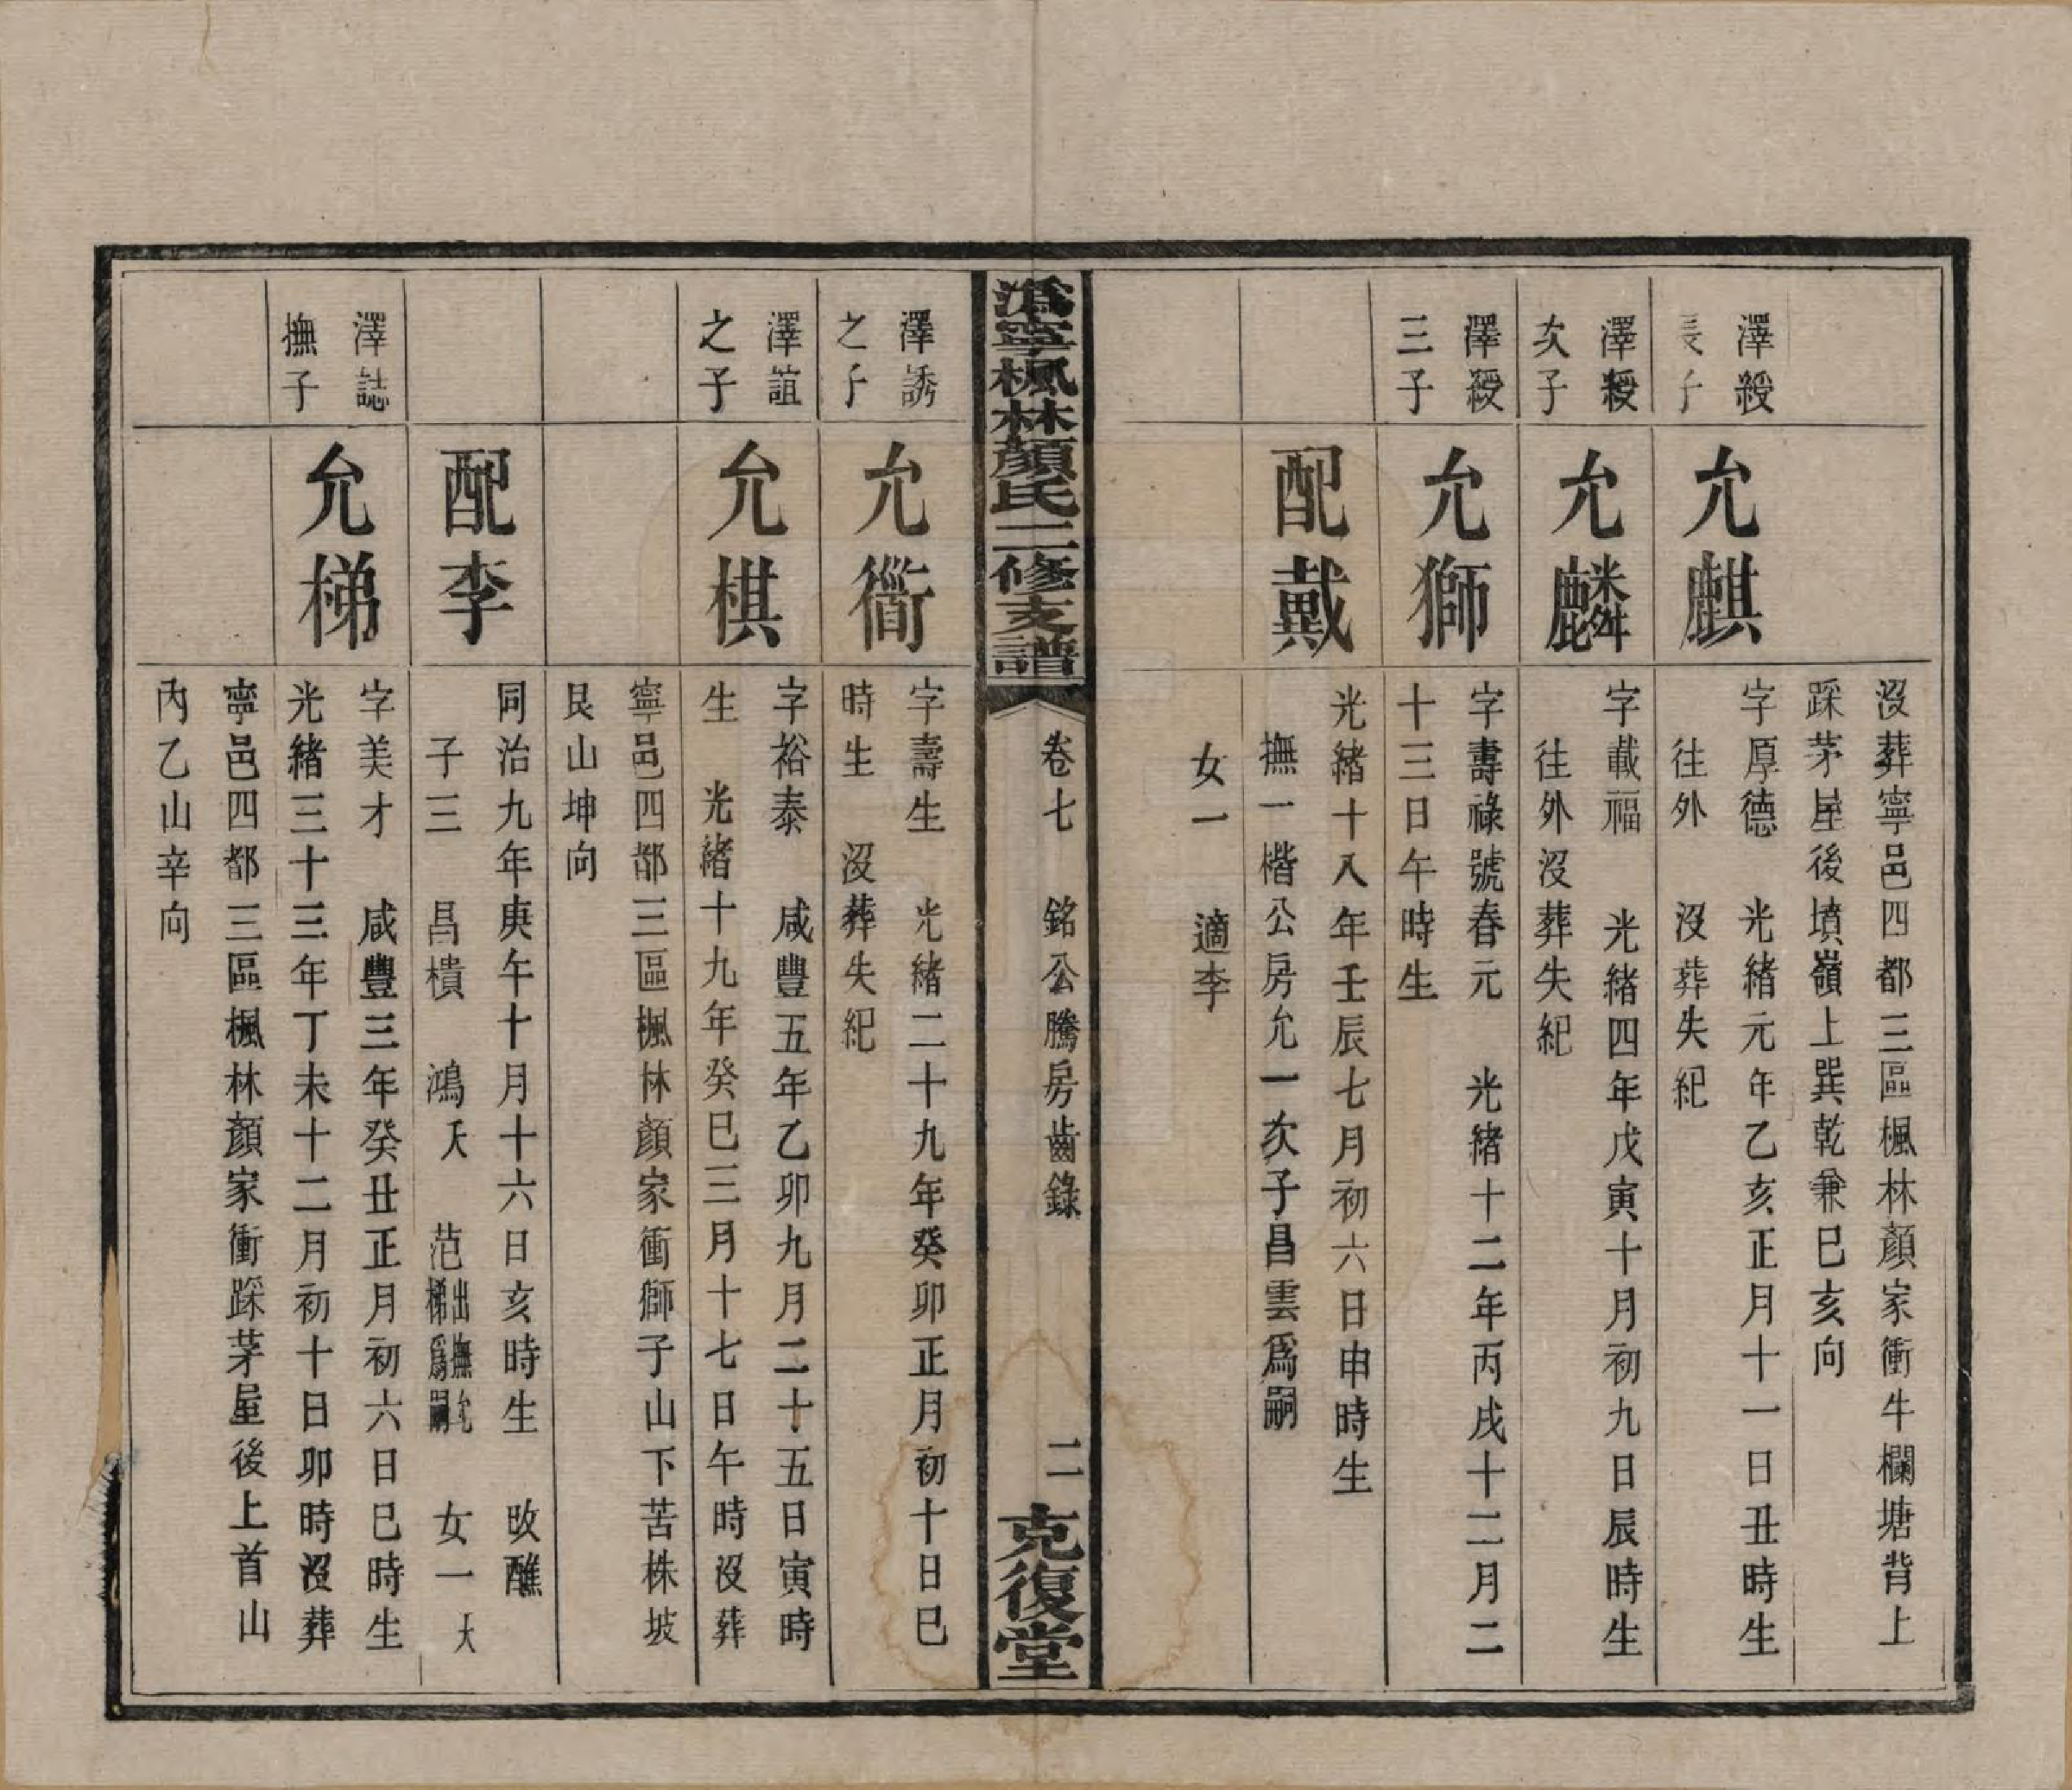 沒葬寧邑四都三區楓林顏家衝牛欄塘背上
踩茅屋後墳嶺上巽乾兼巳亥向
澤綬
長子
允麒
字厚德　光緒元年乙亥正月十一日丑時生
往外　沒葬失紀
澤綬
次子
允麟
字載福　光緒四年戊寅十月初九日辰時生
往外沒葬失紀
澤綬
三子
允獅
字壽祿號春元　光緒十二年丙戌十二月二
十三日午時生
配戴
光緒十八年壬辰七月初六日申時生
撫一楷公房允一次子昌雲爲嗣
女一　適李
溈寧楓林顏氏二修支譜
卷七　銘公騰房齒錄　二
克復堂
澤誘
之子
允衢
字壽生　光緒二十九年癸卯正月初十日巳
時生　沒葬失紀
澤誼
之子
允棋
字裕泰　咸豐五年乙卯九月二十五日寅時
生　光緒十九年癸巳三月十七日午時沒葬
寧邑四都三區楓林顏家衝獅子山下苦株坡
艮山坤向
配李
同治九年庚午十月十六日亥時生　改醮
子三　昌樻　鴻天　范出撫允梯爲嗣　女一大
澤誌
撫子
允梯
字美才　咸豐三年癸丑正月初六日巳時生
光緒三十三年丁未十二月初十日卯時沒葬
寧邑四都三區楓林顏家衝踩茅屋後上首山
內乙山辛向